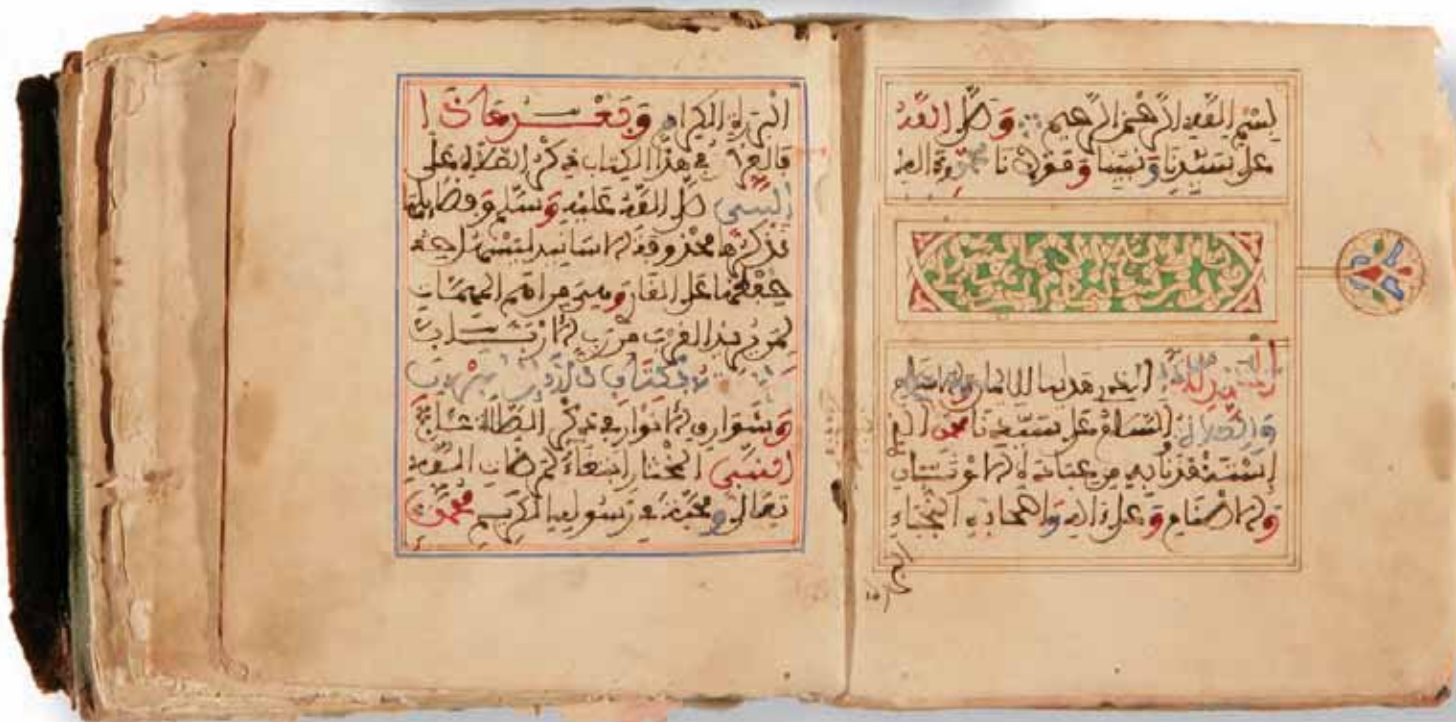 بسم الله الرحمن الرحيم وصلى الله
على سيدنا ونبينا ومولانا
الحمد لله الذي هدينا للايمان والاسلام
والصلاة والسلام على سيدنا محمد الذي
استنقذنا به من عبادة الاوثان
والاصنام وعلى ءاله واصحابه النجباء
البررة الكرام وبعد هاذا
فالغرض في هذا الكتاب ذكر الصلاة على
النبي صلى الله عليه وسلم وفضايلها
نذكرها محذوفة الاسانيد ليسهل
حفظها على القارئ وهي من اهم المهمات
لمن يريد القرب من رب الارباب
وشوارق الانوار في ذكر الصلاة على
النبي المختار ابتغاء لمرضات الله
تعالى ومحبة في رسوله الكريم محمد